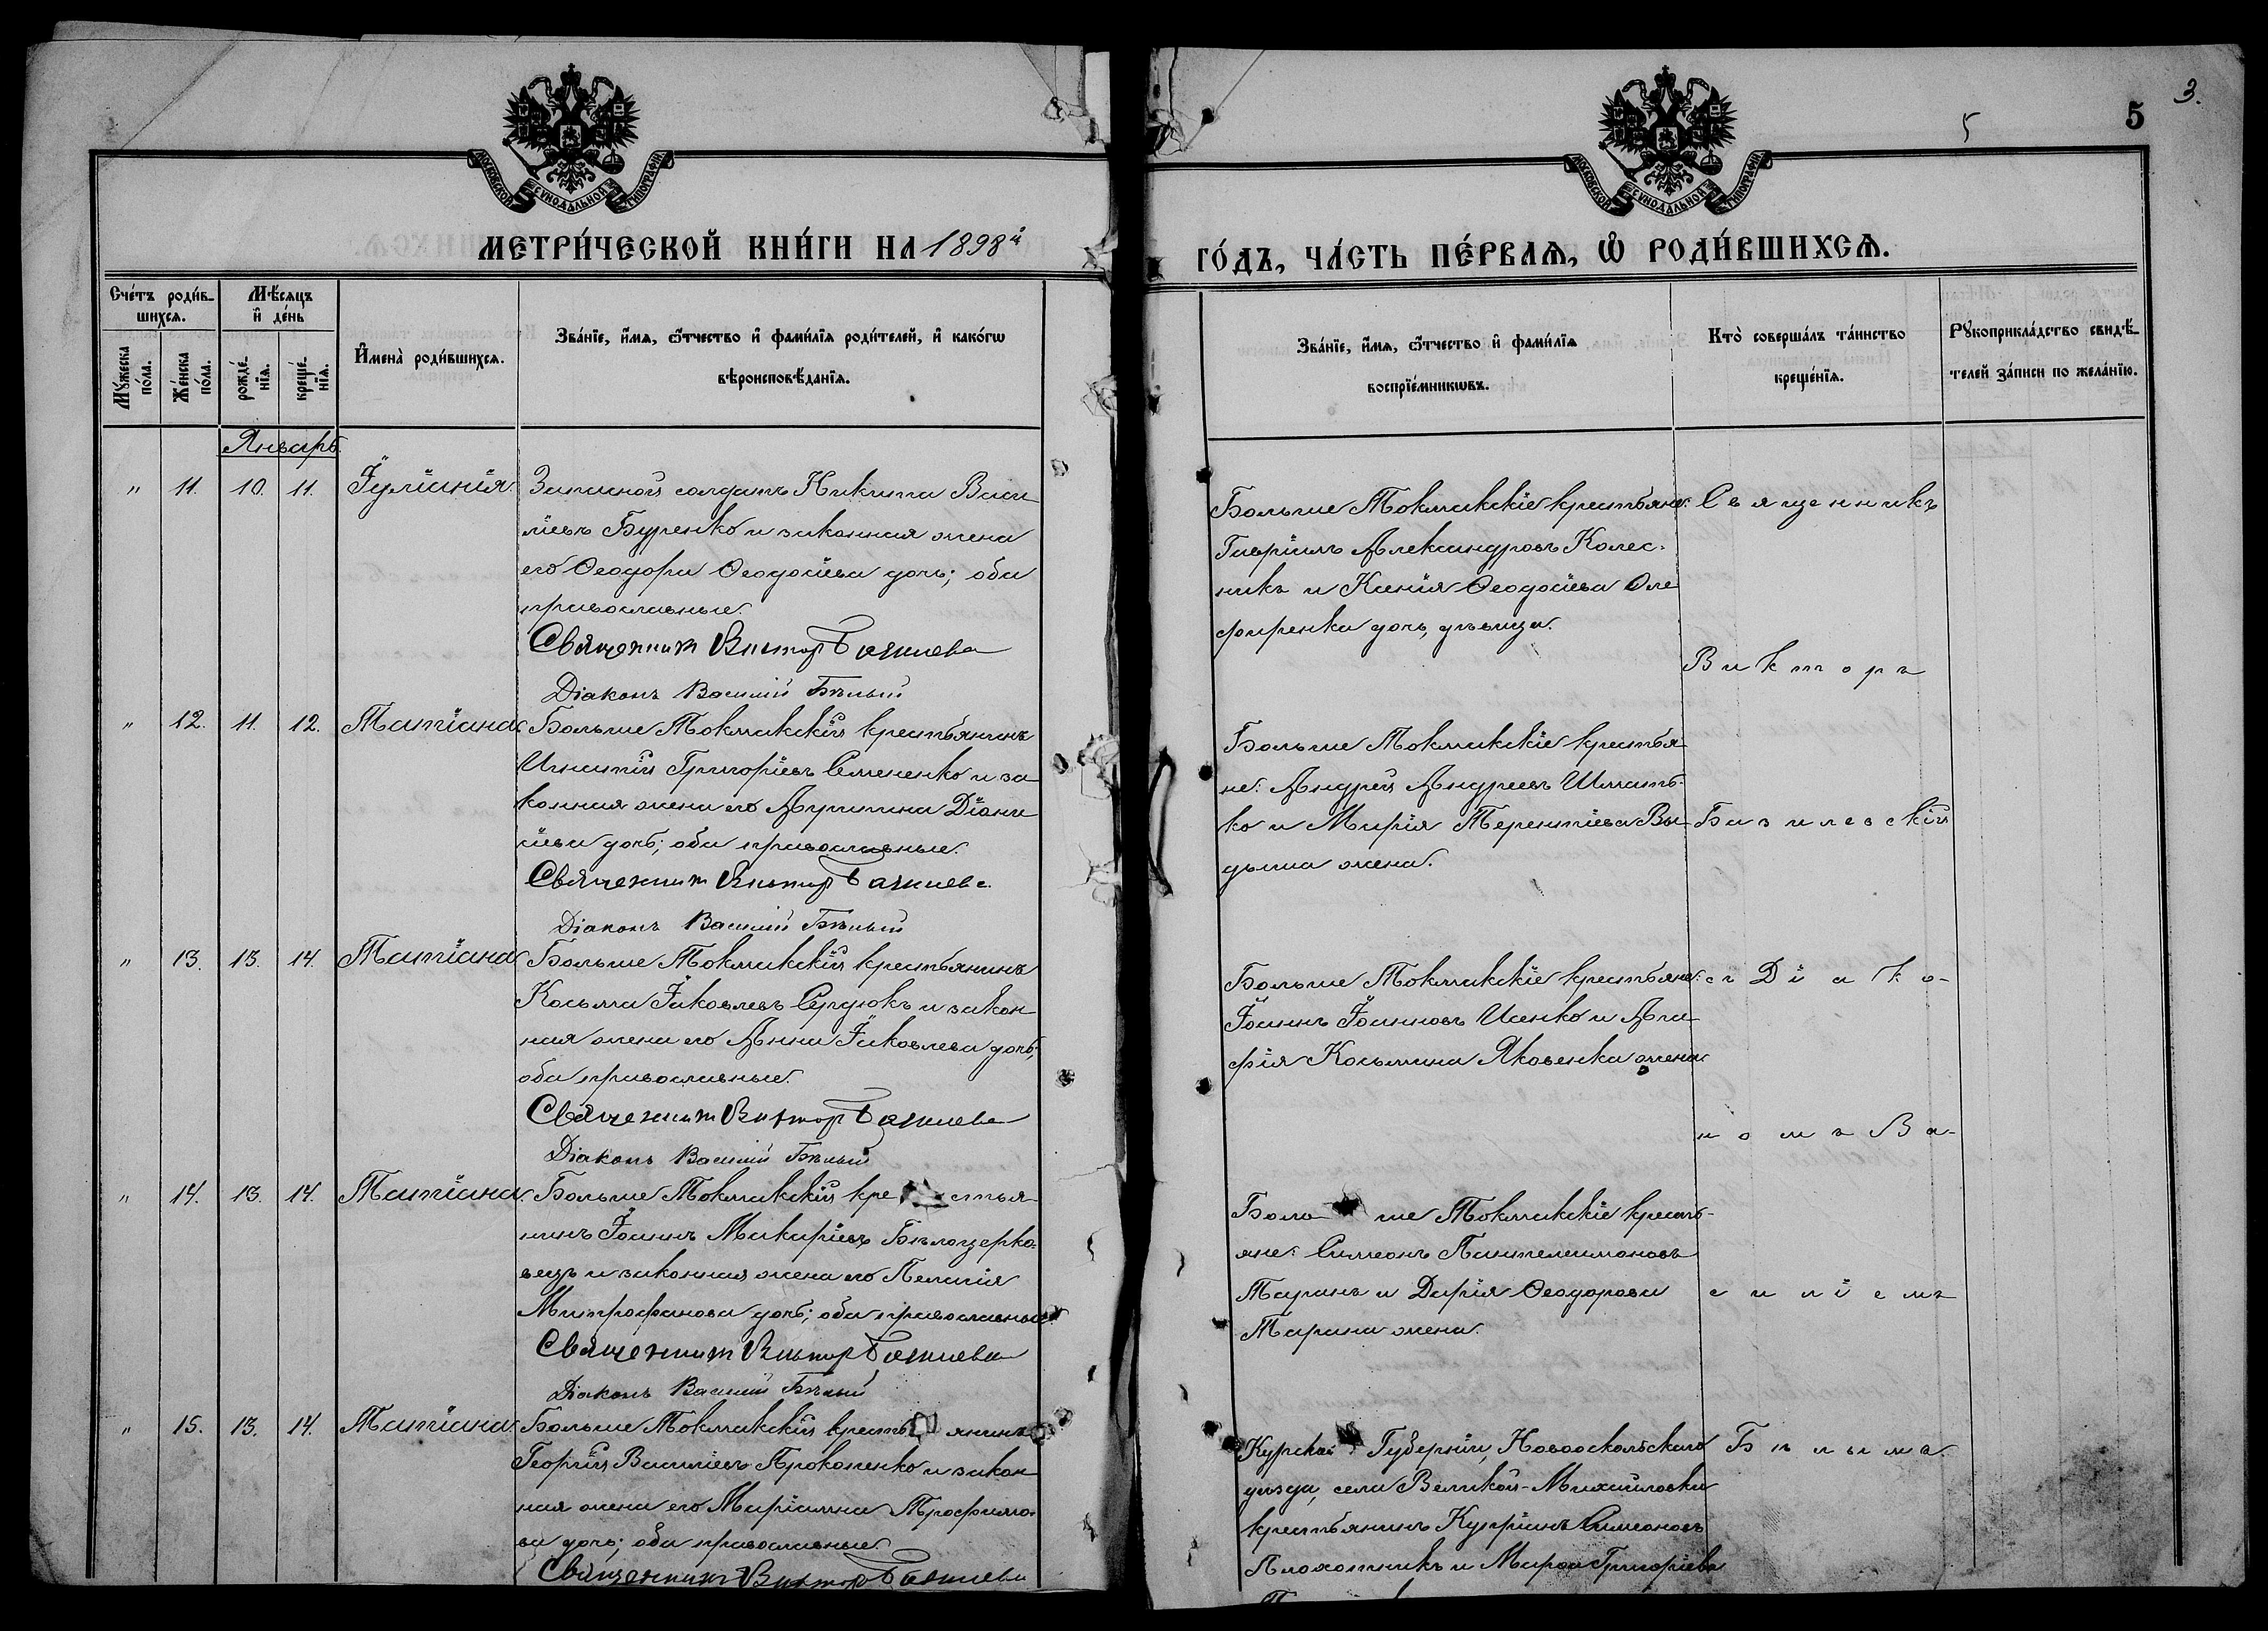 3.
5
5
МОСКОВСКОЙ СѴНОДАЛЬНОЙ ТИПОГРАФІИ
МОСКОВСКОЙ СѴНОДАЛЬНОЙ ТИПОГРАФІИ
МЕТРИ́ЧЕСКОЙ КНИ́ГИ НА 1898й
ГО́ДЪ, ЧА́СТЬ ПЕ́РВАѦ, Ѡ҆ РОДИ́ВШИХСѦ.
Сче́тъ роди́в-
шихсѧ.
Мꙋ́жеска по́ла.
Же́нска по́ла.
Мѣ́сѧцъ
и҆ де́нь
рожде́-
нїѧ.
креще́-
нїѧ.
И҆мена̀ роди́вшихсѧ.
Зва́нїе, и҆́мѧ, ѻ҆́тчество и҆ фами́лїѧ роди́телей, и҆ како́гѡ
вѣроисповѣ́данїѧ.
Зва́нїе, и҆́мѧ, ѻ҆́тчество и҆ фами́лїѧ
воспрїе́мникѡвъ.
Кто̀ соверша́лъ та́инство
креще́нїѧ.
Рꙋкоприкла́дство свидѣ́-
телей за́писи по жела́нїю.
Январь
" 11. 10. 11. Іуліанія.
Запасной солдатъ Никита Васи
ліевъ Буренко и законная жена
его Ѳеодора Ѳеодосіева дочь; оба
православные.
Священник Виктор Базилевс
Діаконъ Василій Бѣлый
Больше Токмакскіе крестьяне:
Гавріилъ Александровъ Колес-
никъ и Ксенія Ѳеодосіева Оле
фиренка дочь, дѣвица.
" 12. 11. 12. Татіана
Больше Токмакскій крестьянинъ
Игнатій Григоріевъ Семененко и за
конная жена его Агрипина Діони
сіева дочь; оба православные.
Священник Виктор Базилевс
Діаконъ Василій Бѣлый
Больше Токмакскіе крестья
не: Андрей Андреевъ Шмать-
ко и Марія Терентіева Вы
дыша жена.
" 13. 13. 14. Татіана
Больше Токмакскій крестьянинъ
Косьма Іаковлевъ Сердюкъ и закон
ная жена его Анна Іаковлева дочь;
оба православные.
Священник Виктор Базилевс
Діаконъ Василій Бѣлый
Больше Токмакскіе крестьяне:
Іоаннъ Іоанновъ Исенко и Ага
фія Косьмина Яковенка жена
" 14. 13. 14. Татіана
Больше Токмакскій кре стья
нинъ Іоаннъ Макаріевъ Бѣлоцерко-
вецъ и законная жена его Пелагія
Митрофанова дочь; оба православные.
Священник Виктор Базилевс
Діаконъ Василій Бѣлый
Боль ше Токмакскіе кресть-
яне: Симеонъ Пантелеимоновъ
Таранъ и Дарія Ѳеодорова
Тарана жена.
" 15. 13. 14. Татіана
Больше Токмакскій кресть янинъ
Георгій Василіевъ Прокопенко и закон
ная жена его Маріамна Трофимо-
ва дочь; оба православные
Священникъ Виктор Базилевс
Курской Губерніи, Новооскольскаго
уѣзда, села Великой-Михайловки
крестьянинъ Купріанъ Симеоновъ
Плохотникъ и Марѳа Григоріева
Священникъ
Викторъ
Базилевскій
съ Діако-
номъ Ва-
силіемъ
Бѣлымъ